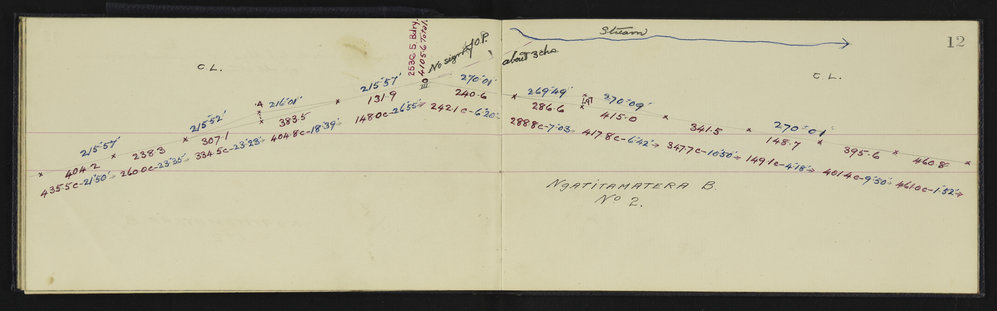 12
Stream
C. L.
C. L.
253C S. Bdry.
4105.6 Total.
No sign of O.P.
about 3 chs
215°57'
404.2
435.5 c-21°50'
238.3
260.0 c-23°25'
215°52'
307.1
334.5 c-23°23'
A
216°01'
383.5
404.8 c-18°39'
215°57'
131.9
148.0 c-26°55'
III
270°01'
240.6
242.1 c-6°20'
269°49'
286.6
288.8 c-7°03'
A
270°09'
415.0
417.8 c-6°42'
341.5
347.7 c-10°50'
270°01'
148.7
149.1 c-4°18'
395.6
401.4 c-9°50'
460.8
461.0 c-1°52'
NGATITAMATERA B.
No 2.